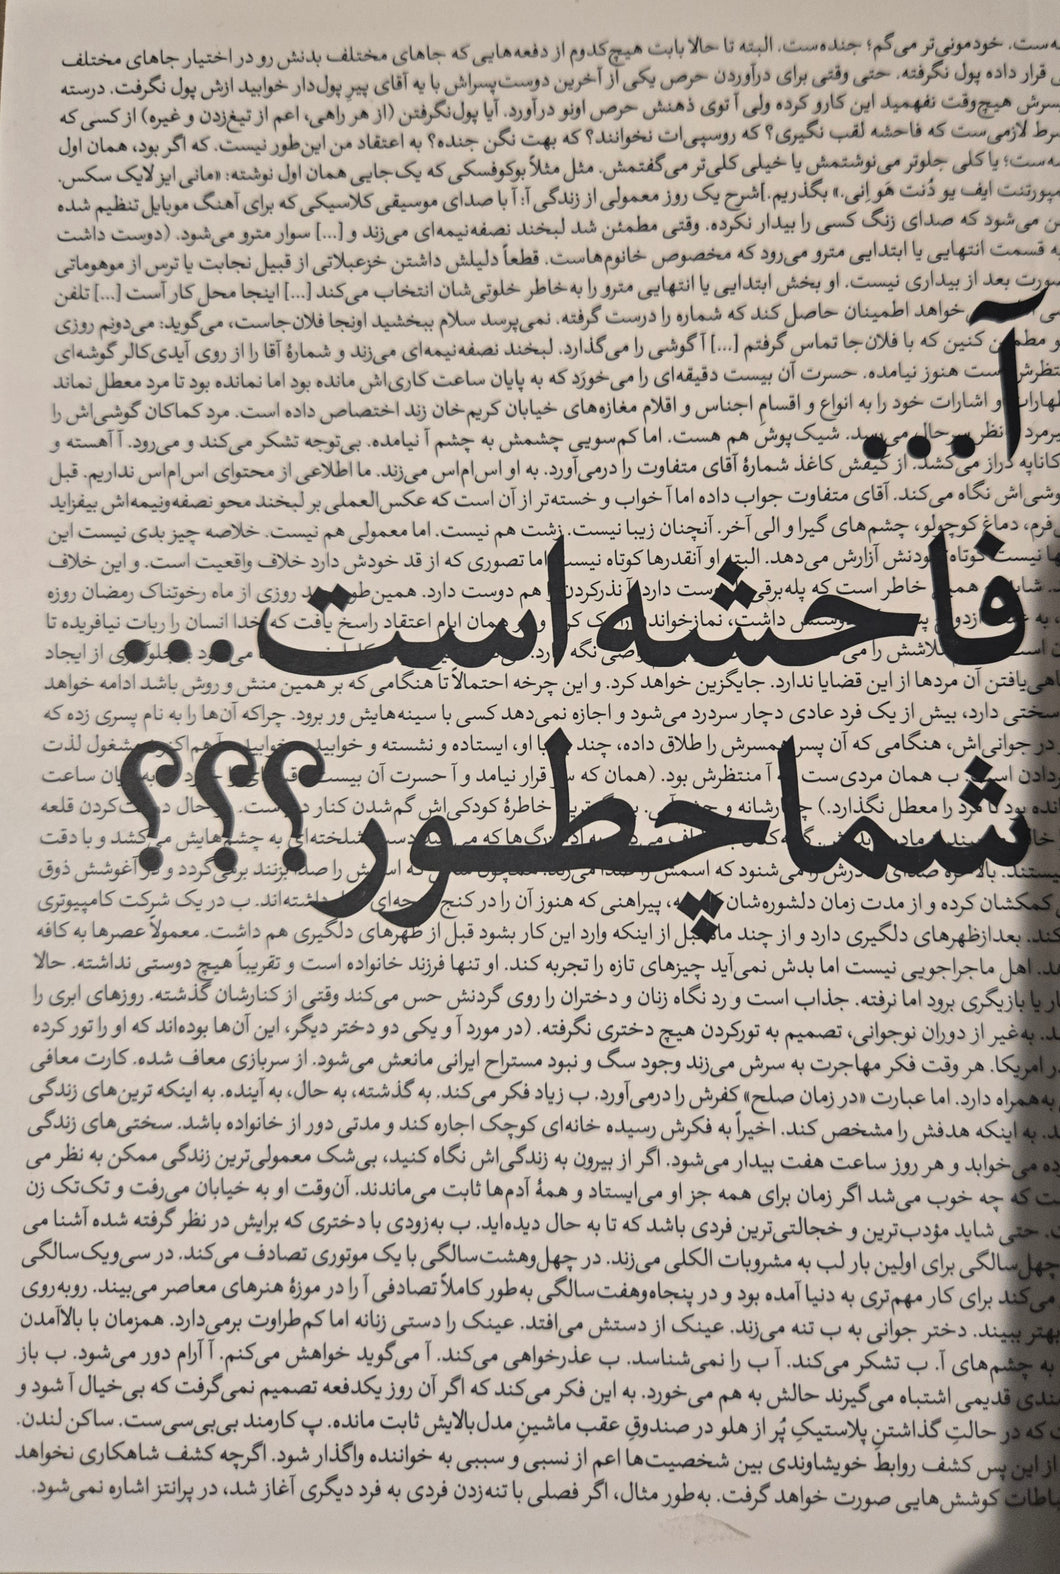 ه‌ست. خودمونی‌تر می‌گم؛ جنده‌ست. البته تا حالا بابت هیچ‌کدوم از دفعه‌هایی که جاهای مختلف بدنش رو در اختیار جاهای مختلف
قرار داده پول نگرفته. حتی وقتی برای درآوردن حرص یکی از آخرین دوست‌پسراش با یه آقای پیرِ پول‌دار خوابید ازش پول نگرفت. درسته
سرش هیچ‌وقت نفهمید این کارو کرده ولی آ توی ذهنش حرص اونو درآورد. آیا پول‌نگرفتن (از هر راهی، اعم از تیغ‌زدن و غیره) از کسی که
رط لازمی‌ست که فاحشه لقب نگیری؟ که روسپی‌ات نخوانند؟ که بهت نگن جنده؟ به اعتقاد من این‌طور نیست. که اگر بود، همان اول
ه‌ست؛ یا کلی جلوتر می‌نوشتمش یا خیلی کلی‌تر می‌گفتمش. مثل مثلاً بوکوفسکی که یک‌جایی همان اول نوشته: «مانی ایز لایک سکس.
مپورتنت ایف یو دُنت هَو اِنی.» بگذریم.]شرح یک روز معمولی از زندگی آ: آ با صدای موسیقی کلاسیکی که برای آهنگ موبایل تنظیم شده
می‌شود که صدای زنگ کسی را بیدار نکرده. وقتی مطمئن شد لبخند نصفه‌نیمه‌ای می‌زند و [...] سوار مترو می‌شود. (دوست داشت
قسمت انتهایی یا ابتدایی مترو می‌رود که مخصوص خانوم‌هاست. قطعاً دلیلش داشتن خزعبلاتی از قبیل نجابت یا ترس از موهوماتی
صورت بعد از بیداری نیست. او بخش ابتدایی یا انتهایی مترو را به‌خاطر خلوتی‌شان انتخاب می‌کند [...] اینجا محل کار آ ست [...] تلفن
خواهد اطمینان حاصل کند که شماره را درست گرفته. نمی‌پرسد سلام ببخشید اونجا فلان‌جاست، می‌گوید: می‌دونم روزی
کنین که با فلان‌جا تماس گرفتم [...] آ گوشی را می‌گذارد. لبخند نصفه‌نیمه‌ای می‌زند و شمارهٔ آقا را از روی آیدی‌کالر گوشه‌ای
ست هنوز نیامده. حسرت آن بیست دقیقه‌ای را می‌خورَد که به پایان ساعت کاری‌اش مانده بود اما نمانده بود تا مرد معطل نماند
و اشارات خود را به انواع و اقسامِ اجناس و اقلام مغازه‌های خیابان کریم‌خان زند اختصاص داده است. مرد کماکان گوشی‌اش را
نظر سرحال می‌رسد. شیک‌پوش هم هست. اما کم‌سویی چشمش به چشم آ نیامده. بی‌توجه تشکر می‌کند و می‌رود. آ آهسته و
کاناپه دراز می‌کشد. از کیفش کاغذ شمارهٔ آقای متفاوت را درمی‌آورد. به او اس‌ام‌اس می‌زند. ما اطلاعی از محتوای اس‌ام‌اس نداریم. قبل
نگاه می‌کند. آقای متفاوت جواب داده اما آ خواب و خسته‌تر از آن است که عکس‌العملی بر لبخند محو نصفه‌ونیمه‌اش بیفزاید
آ...
دماغ کوچولو، چشم‌های گیرا و الی آخر. آنچنان زیبا نیست. زشت هم نیست. اما معمولی هم نیست. خلاصه چیز بدی نیست این
نیست کوتاه بودنش آزارش می‌دهد. البته او آنقدرها کوتاه نیست اما تصوری که از قد خودش دارد خلاف واقعیت است. و این خلاف
خاطر است که پله‌برقی دارد. آ نذرکردن هم دوست دارد. همین‌طور روزی از ماه رخوتناک رمضان روزه
داشت، نمازخواندن همان ایام اعتقاد راسخ یافت که خدا انسان را ربات نیافریده تا
فاحشه است...
تلاشش را از ایجاد
یافتن آن مردها از این قضایا ندارد. جایگزین خواهد کرد. و این چرخه احتمالاً تا هنگامی که بر همین منش و روش باشد ادامه خواهد
سختی دارد، بیش از یک فرد عادی دچار سردرد می‌شود و اجازه نمی‌دهد کسی با سینه‌هایش ور برود. چراکه آن‌ها را به نام پسری زده که
در جوانی‌اش، هنگامی که آن پسر همسرش را طلاق داده، چند با او، ایستاده و نشسته و خوابیده مشغول لذت
ب همان مردی‌ست آ منتظرش بود. (همان که سر قرار نیامد و آ حسرت آن بیست ساعت
مرد را معطل نگذارد.) چهارشانه و خاطرهٔ کودکی‌اش گم‌شدن کنار حال درست‌کردن قلعه
شما چطور؟؟؟
می‌کشد و با دقت
صدای می‌شنود که اسمش را صدا می‌زند. را صدا بزنند برمی‌گردد و در آغوشش ذوق
کمکشان کرده و از مدت زمان دلشوره‌شان پیراهنی که هنوز آن را در کنج داشته‌اند. ب در یک شرکت کامپیوتری
بعدازظهرهای دلگیری دارد و از چند ماه قبل از اینکه وارد این کار بشود قبل از ظهرهای دلگیری هم داشت. معمولاً عصرها به کافه
اهل ماجراجویی نیست اما بدش نمی‌آید چیزهای تازه را تجربه کند. او تنها فرزند خانواده است و تقریباً هیچ دوستی نداشته. حالا
یا بازیگری برود اما نرفته. جذاب است و رد نگاه زنان و دختران را روی گردنش حس می‌کند وقتی از کنارشان گذشته. روزهای ابری را
به‌غیر از دوران نوجوانی، تصمیم به تورکردن هیچ دختری نگرفته. (در مورد آ و یکی دو دختر دیگر، این آن‌ها بوده‌اند که او را تور کرده
امریکا. هر وقت فکر مهاجرت به سرش می‌زند وجود سگ و نبود مستراح ایرانی مانعش می‌شود. از سربازی معاف شده. کارت معافی
به‌همراه دارد. اما عبارت «در زمان صلح» کفرش را درمی‌آورد. ب زیاد فکر می‌کند. به گذشته، به حال، به آینده. به اینکه ترین‌های زندگی
به اینکه هدفش را مشخص کند. اخیراً به فکرش رسیده خانه‌ای کوچک اجاره کند و مدتی دور از خانواده باشد. سختی‌های زندگی
می‌خوابد و هر روز ساعت هفت بیدار می‌شود. اگر از بیرون به زندگی‌اش نگاه کنید، بی‌شک معمولی‌ترین زندگی ممکن به نظر می
که چه خوب می‌شد اگر زمان برای همه جز او می‌ایستاد و همهٔ آدم‌ها ثابت می‌ماندند. آن‌وقت او به خیابان می‌رفت و تک‌تک زن
حتی شاید مؤدب‌ترین و خجالتی‌ترین فردی باشد که تا به حال دیده‌اید. ب به‌زودی با دختری که برایش در نظر گرفته شده آشنا می
چهل‌سالگی برای اولین بار لب به مشروبات الکلی می‌زند. در چهل‌وهشت‌سالگی با یک موتوری تصادف می‌کند. در سی‌ویک‌سالگی
می‌کند برای کار مهم‌تری به دنیا آمده بود و در پنجاه‌وهفت‌سالگی به‌طور کاملاً تصادفی آ را در موزهٔ هنرهای معاصر می‌بیند. روبه‌روی
بهتر ببیند. دختر جوانی به ب تنه می‌زند. عینک از دستش می‌افتد. عینک را دستی زنانه اما کم‌طراوت برمی‌دارد. همزمان با بالاآمدن
به چشم‌های آ. ب تشکر می‌کند. آ ب را نمی‌شناسد. ب عذرخواهی می‌کند. آ می‌گوید خواهش می‌کنم. آ آرام دور می‌شود. ب باز
قدیمی اشتباه می‌گیرند حالش به هم می‌خورد. به این فکر می‌کند که اگر آن روز یکدفعه تصمیم نمی‌گرفت که بی‌خیال آ شود و
که در حالتِ گذاشتنِ پلاستیکِ پُر از هلو در صندوقِ عقب ماشینِ مدل‌بالایش ثابت مانده. پ کارمند بی‌بی‌سی‌ست. ساکن لندن.
از این پس کشف روابط خویشاوندی بین شخصیت‌ها اعم از نسبی و سببی به خواننده واگذار شود. اگرچه کشف شاهکاری نخواهد
کوشش‌هایی صورت خواهد گرفت. به‌طور مثال، اگر فصلی با تنه‌زدن فردی به فرد دیگری آغاز شد، در پرانتز اشاره نمی‌شود.